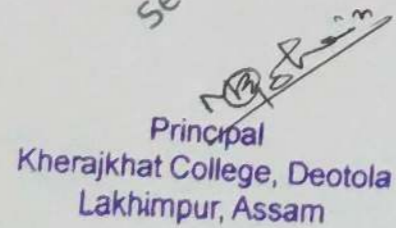 Principal
Kherajkhat College, Deotola
Lakhimpur, Assam